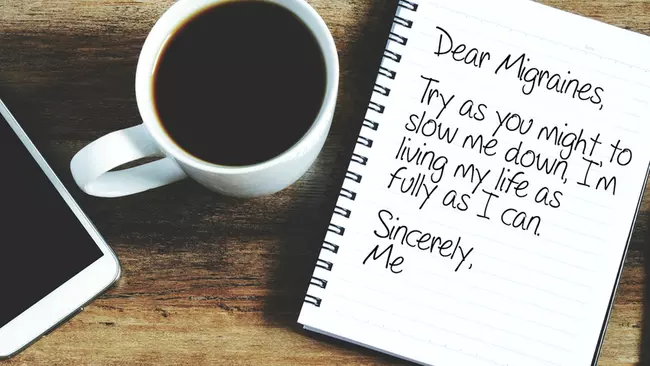 Dear Migraines,
Try as you might to
slow me down, I'm
living my life as
fully as I can.
Sincerely,
Me